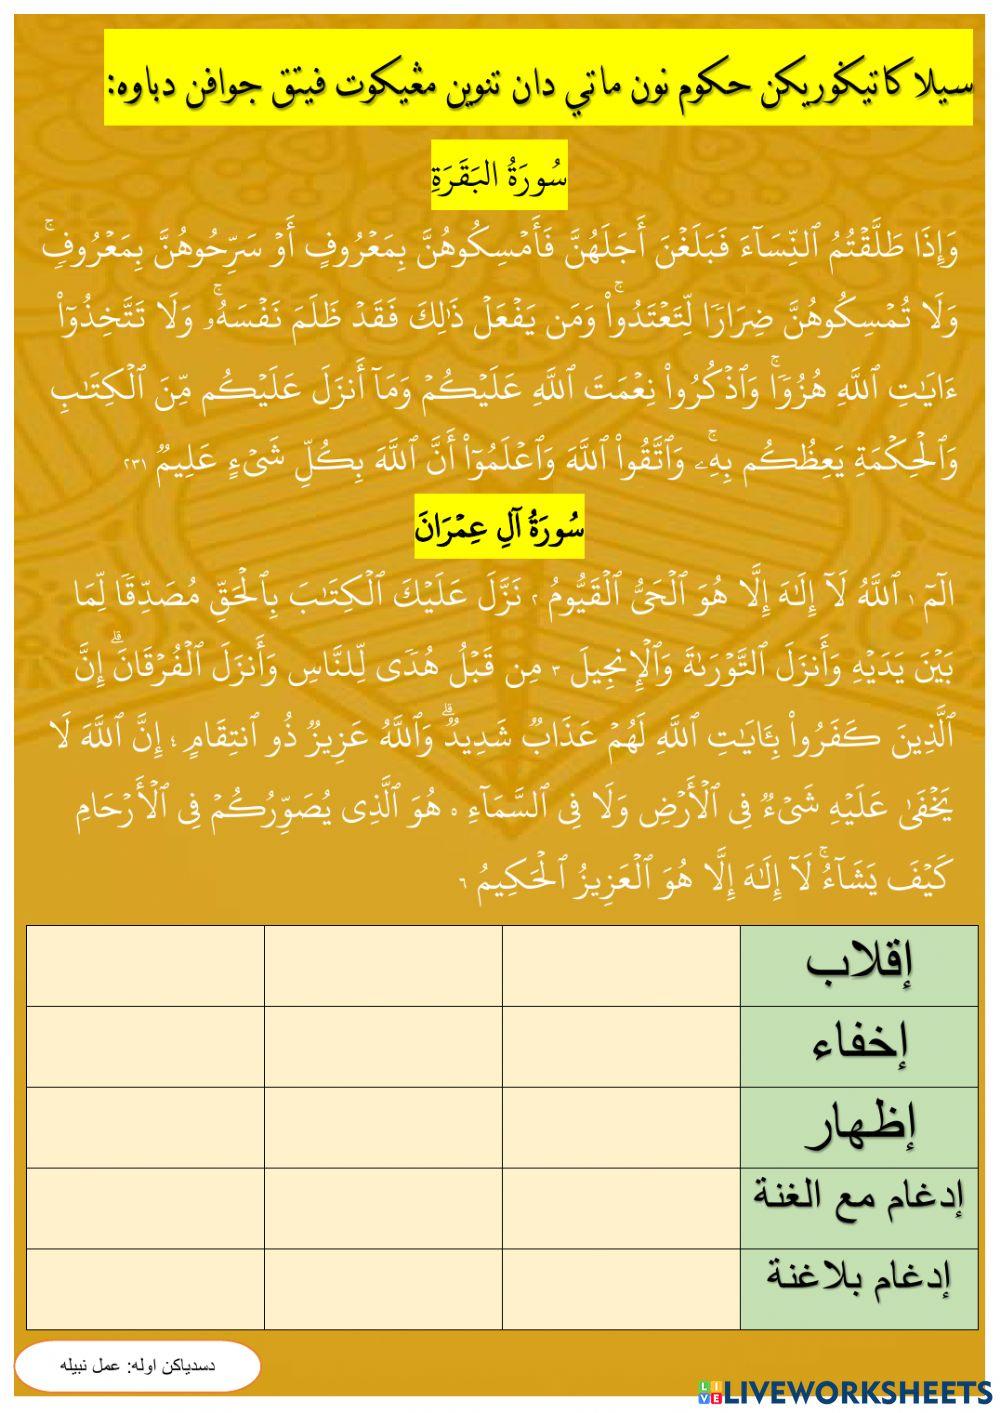 سيلا كاتيݢوريكن حكوم نون ماتي دان تنوين مڠيكوت ڤيتق جواڤن دباوه:
سُورَةُ البَقَرَةِ
وَإِذَا طَلَّقۡتُمُ ٱلنِّسَآءَ فَبَلَغۡنَ أَجَلَهُنَّ فَأَمۡسِكُوهُنَّ بِمَعۡرُوفٍ أَوۡ سَرِّحُوهُنَّ بِمَعۡرُوفٖۚ
وَلَا تُمۡسِكُوهُنَّ ضِرَارٗا لِّتَعۡتَدُواْۚ وَمَن يَفۡعَلۡ ذَٰلِكَ فَقَدۡ ظَلَمَ نَفۡسَهُۥۚ وَلَا تَتَّخِذُوٓاْ
ءَايَٰتِ ٱللَّهِ هُزُوٗاۚ وَٱذۡكُرُواْ نِعۡمَتَ ٱللَّهِ عَلَيۡكُمۡ وَمَآ أَنزَلَ عَلَيۡكُم مِّنَ ٱلۡكِتَٰبِ
وَٱلۡحِكۡمَةِ يَعِظُكُم بِهِۦۚ وَٱتَّقُواْ ٱللَّهَ وَٱعۡلَمُوٓاْ أَنَّ ٱللَّهَ بِكُلِّ شَيۡءٍ عَلِيمٞ ٢٣١
سُورَةُ آلِ عِمۡرَانَ
الٓمٓ ١ ٱللَّهُ لَآ إِلَٰهَ إِلَّا هُوَ ٱلۡحَيُّ ٱلۡقَيُّومُ ٢ نَزَّلَ عَلَيۡكَ ٱلۡكِتَٰبَ بِٱلۡحَقِّ مُصَدِّقٗا لِّمَا
بَيۡنَ يَدَيۡهِ وَأَنزَلَ ٱلتَّوۡرَىٰةَ وَٱلۡإِنجِيلَ ٣ مِن قَبۡلُ هُدٗى لِّلنَّاسِ وَأَنزَلَ ٱلۡفُرۡقَانَۗ إِنَّ
ٱلَّذِينَ كَفَرُواْ بِـَٔايَٰتِ ٱللَّهِ لَهُمۡ عَذَابٞ شَدِيدٞۗ وَٱللَّهُ عَزِيزٞ ذُو ٱنتِقَامٍ ٤ إِنَّ ٱللَّهَ لَا
يَخۡفَىٰ عَلَيۡهِ شَيۡءٞ فِي ٱلۡأَرۡضِ وَلَا فِي ٱلسَّمَآءِ ٥ هُوَ ٱلَّذِي يُصَوِّرُكُمۡ فِي ٱلۡأَرۡحَامِ
كَيۡفَ يَشَآءُۚ لَآ إِلَٰهَ إِلَّا هُوَ ٱلۡعَزِيزُ ٱلۡحَكِيمُ ٦
إقلاب
إخفاء
إظهار
إدغام مع الغنة
إدغام بلاغنة
دسدياكن اوله: عمل نبيله
LIVEWORKSHEETS